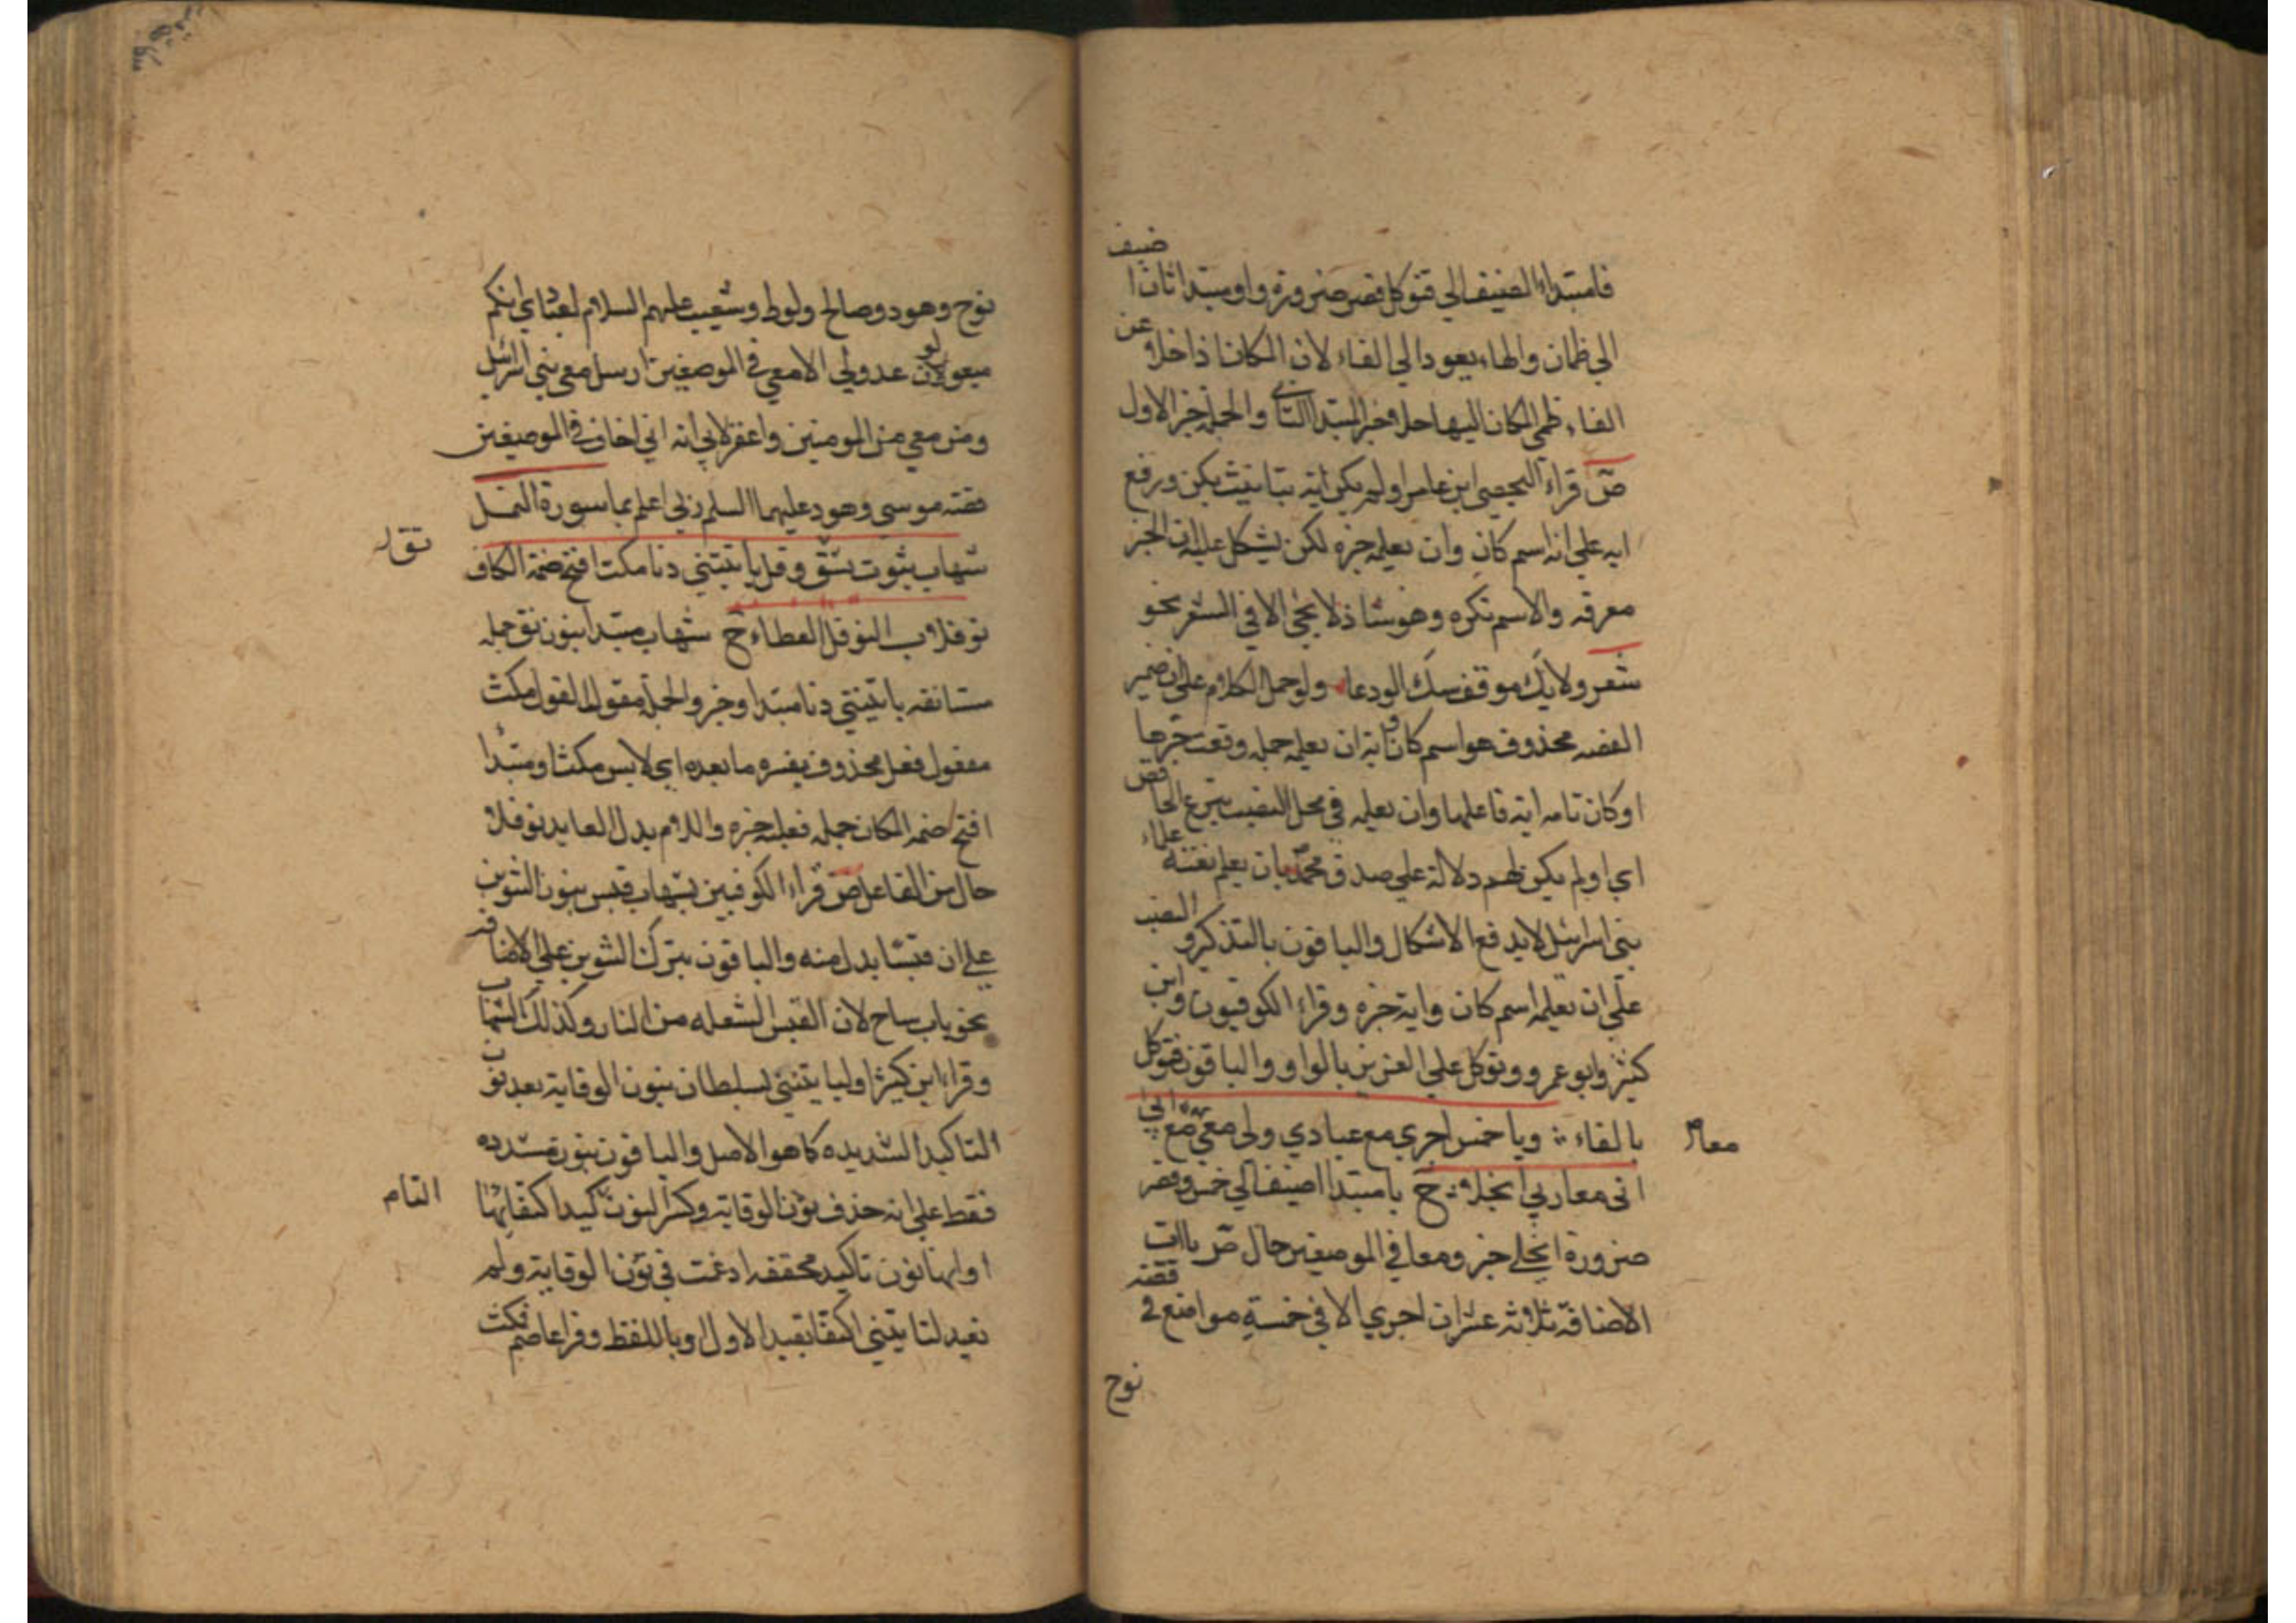 ضيف
فا مبتداء اضيف الي فتوكل قصر ضرورة واو مبتدا ثان
الي ظمان والهاء يعود الي الفاء لان المكان اذا خلا عن
الفاء ظمي المكان اليها حلا خبر المبتدا الثاني والجملة خبر الاول
ص قراء اليحصبي ابن عامر اولم يكن اية بتانيث يكن ورفع
اية علي انه اسم كان وان يعلمه خبره لكن يشكل عليه ان الخبر
معرفه والاسم نكره وهو شاذ لا يجئ الا في الشعر نحو
شعر ولا يك موقف منك الوداعا ولو حمل الكلام علي ان ضمير
القصه محذوف هو اسم كان واية ان يعلمه جمله وقعت خبرها
او كان تامه اية فاعلها وان يعلمه في محل النصب بنزع الخافض
اي اولم يكن لهم دلالة علي صدق محمد بان يعلم نعته علماء
بني اسرائيل لا يدفع الاشكال والباقون بالتذكير والنصب
علي ان يعلمه اسم كان واية خبره وقراء الكوفيون وابن
كثير وابو عمرو وتوكل علي العزيز بالواو والباقون فتوكل
بالفاء ويا خمس اجري مع عبادي ولي معي مع ابي
معا
اني معا ربي انجلا ح يا مبتدا اضيف الي خمس وقصر
ضرورة انجلي خبر ومعا في الموضعين حال ص ياات
الاضافة ثلاثة عشر ان اجري الا في خمسة مواضع في قصه
نوح
نوح وهود وصالح ولوط وشعيب عليهم السلام بعبادي انكم
متبعون عدو لي الا معي في الموضعين ارسل معي بني اسرائيل
ومن معي من المومنين واغفر لابي انه اني اخاف في الموضعين
قصه موسي وهود عليهما السلم ربي اعلم بما سورة النمل
شهاب بنون ثق وقل ياتينني دنا مكث افتح ضمة الكاف
نوفلا ب النوفل العطاء ح شهاب مبتدا بنون ثق جمله
مستانفه ياتينني دنا مبتدا وخبر والجملة مقول القول مكث
مفعول فعل محذوف يفسره ما بعده اي لابس مكث او مبتدا
افتح ضمه الكاف جمله فعليه خبره واللام بدل العايد نوفلا
حال من الفاعل ص قراء الكوفيين بشهاب قبس بنون التنوين
علي ان قبسا بدل منه والباقون بترك التنوين علي الاضافه
نحو باب ساج لان القبس الشعله من النار وكذلك الشهاب
وقراء ابن كثير اولياتينني بسلطان بنون الوقاية بعد نون
التاكيد الشديده كما هو الاصل والباقون بنون مشدده
فقط علي انه حذف نون الوقاية وكسر النون تاكيد اكتفا بها
او انها نون تاكيد مخففه ادغمت في نون الوقاية ولم
يقيد لتاتينني اكتفا بقيد الاول او باللفظ وقرا عاصم فمكث